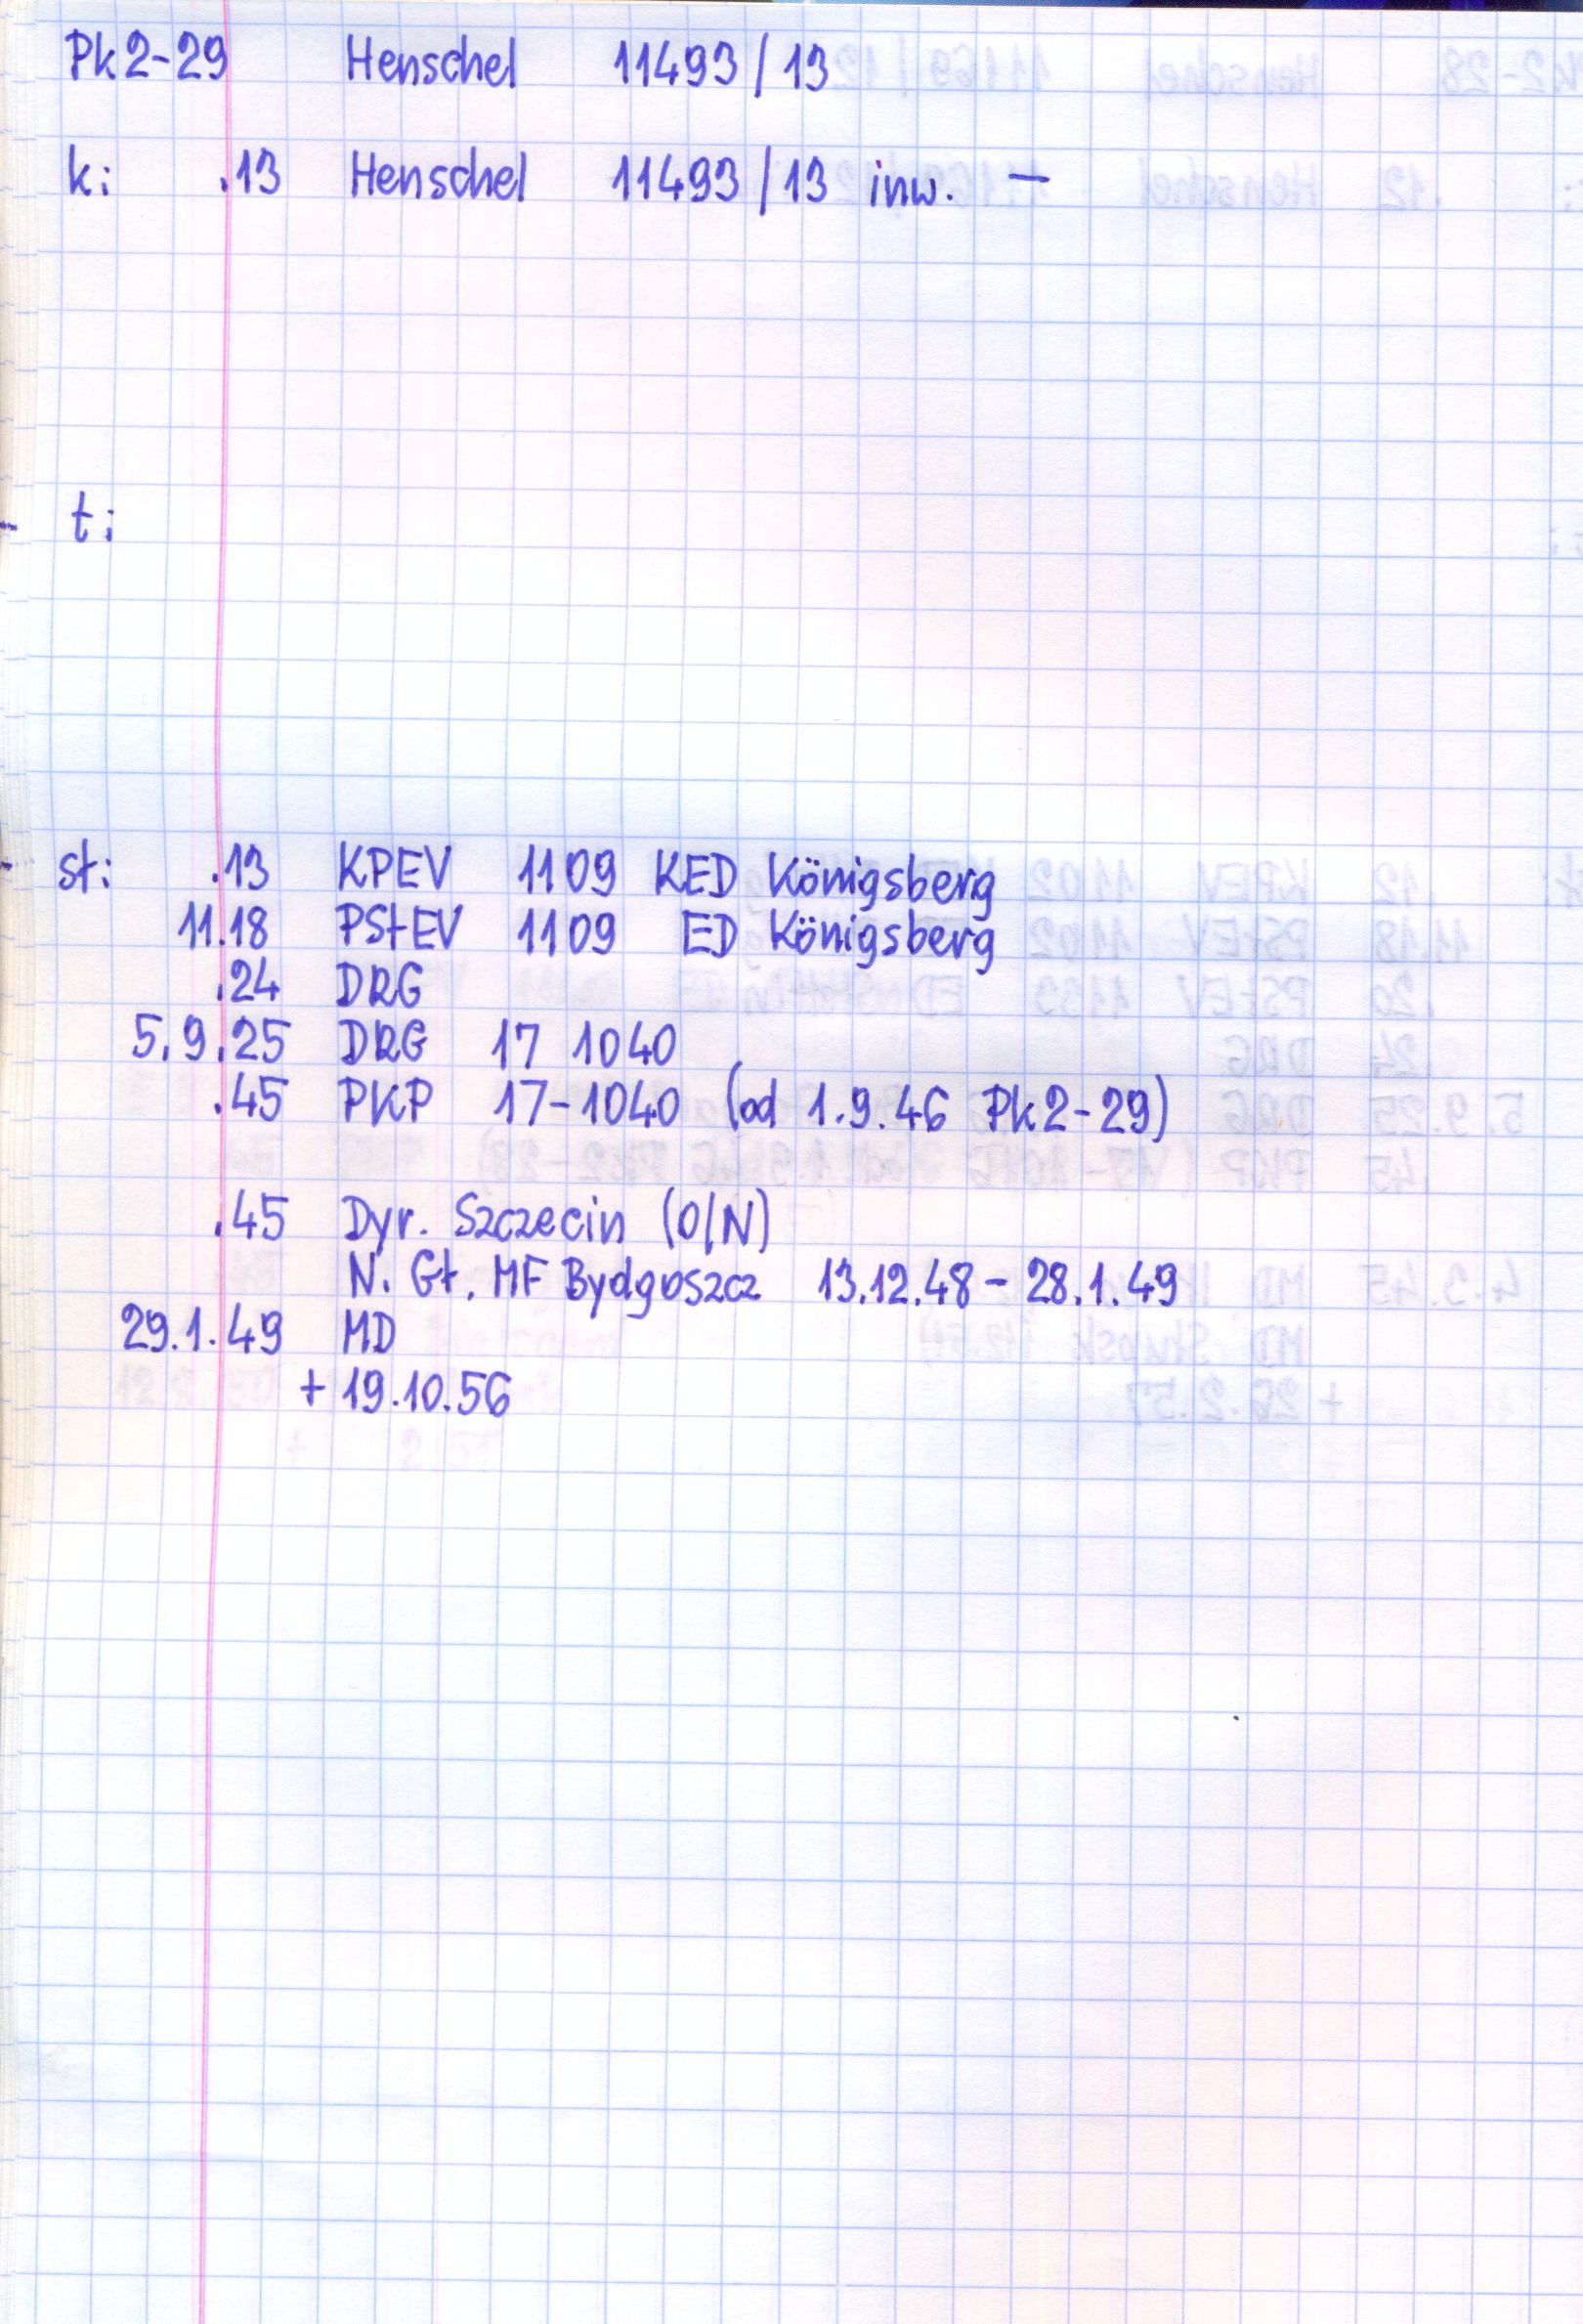 Pk2-29 Henschel 11493/13
k: .13 Henschel 11493/13 inw. —
t:
st: .13 KPEV 1109 KED Königsberg
11.18 PStEV 1109 ED Königsberg
.24 DRG
5.9.25 DRG 17 1040
.45 PKP 17-1040 (od 1.9.46 Pk2-29)
.45 Dyr. Szczecin (O/N)
N. Gł. MF Bydgoszcz 13.12.48 - 28.1.49
29.1.49 MD
+ 19.10.56